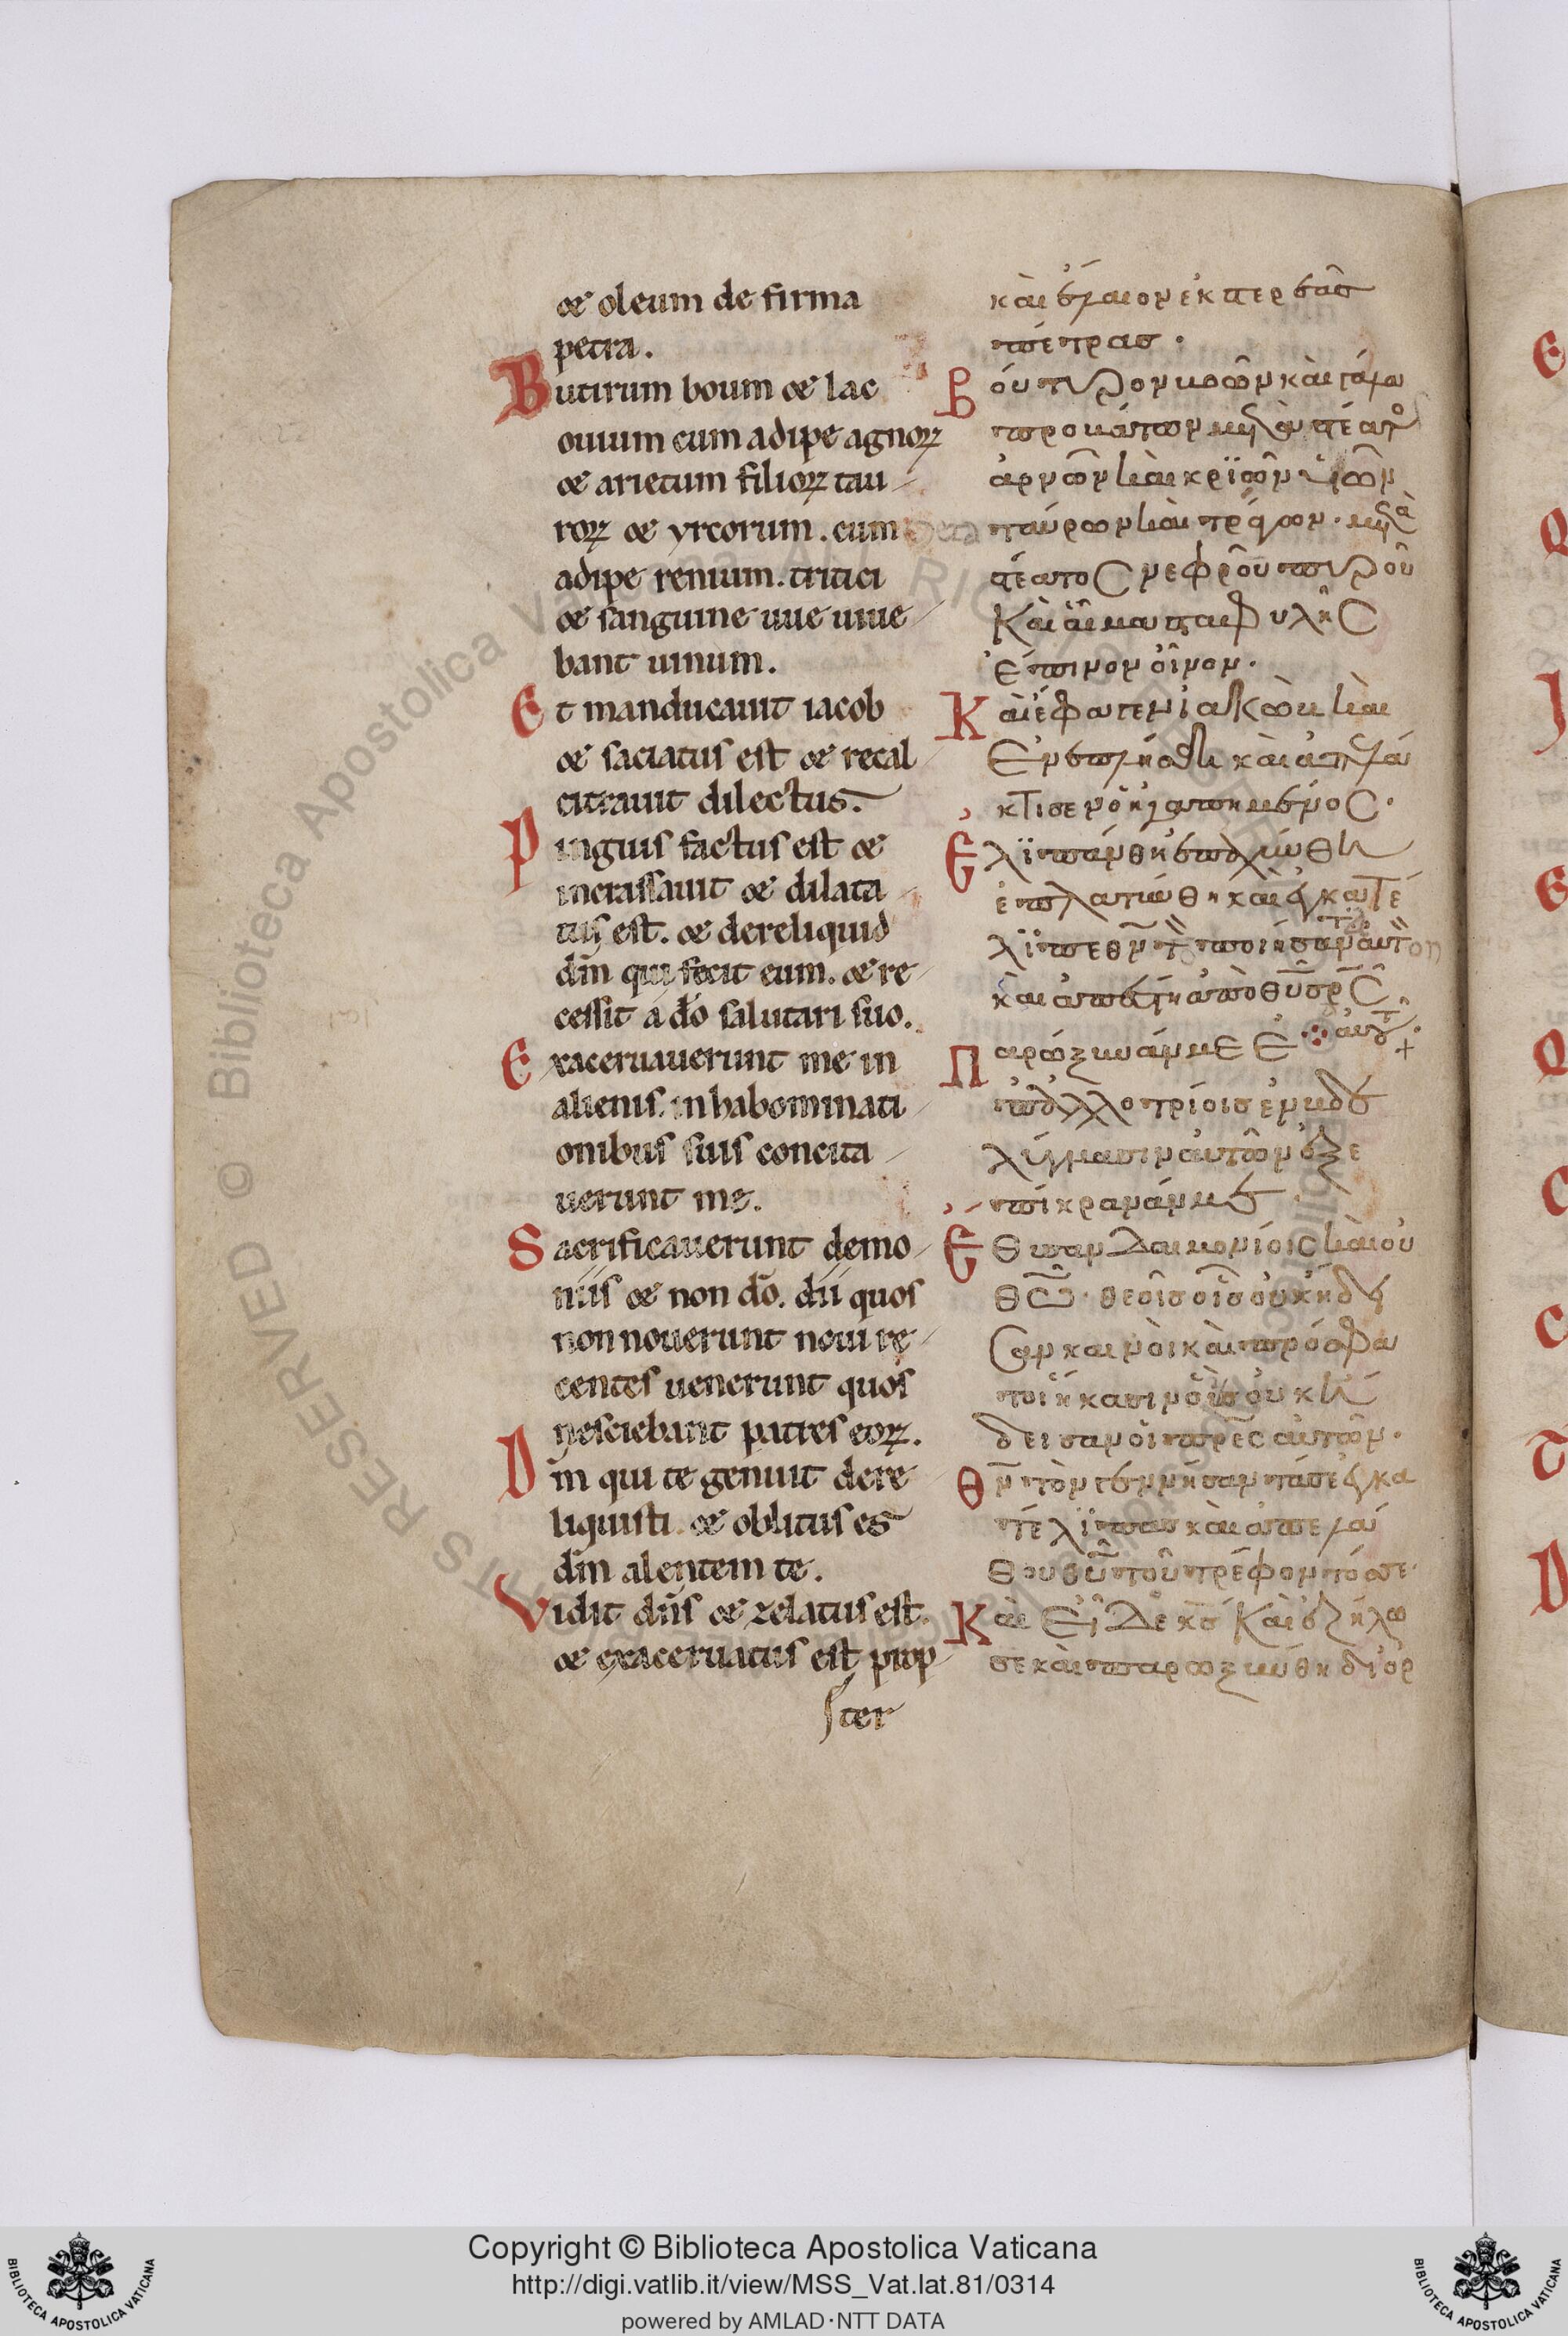 & oleum de firma
petra.
Butirum boum & lac
ouium cum adipe agnoꝝ
& arietum filioꝝ tau
roꝝ & yrcorum. cum
adipe renium. tritici
& sanguine uue uiue
bant uinum.
Et manducauit iacob
& saciatus est & recal
citrauit dilectus.
Pinguis factus est &
incrassauit & dilata
tus est. & dereliquid
dm̄ qui fecit eum. & re
cessit a dō salutari suo.
Exaceruauerunt me in
alienis. in habominati
onibus suis concita
uerunt me.
Sacrificauerunt demo
niis & non dō. dii quos
non nouerunt noui re
centes uenerunt quos
nesciebant patres eoꝝ.
Dm̄ qui te genuit dere
liquisti. & oblitus es
dm̄ alentem te.
Vidit dn̄s & zelatus est.
& exaceruatus est prop
ter
κὰι ἔλαιον ἐκ στερεᾶσ
πέτρασ.
Βούτυρον βοῶν κὰι γάλα
προβάτων μετὰ στέατο
ἀρνῶν κὰι κριῶν ὑιῶν
ταύρων κὰι τράγων. μετὰ
στέατος νεφρῶν πυροῦ
Κὰι ἇιμα σταφυλῆς
ἔπινον ὀῖνον.
Κὰι ἔφαγεν ϊακὼβ κὰι
Ενεπλήσθη κὰι ἀπελά
κτισεν ὁ ἠγαπημένος.
Ελιπάνθη ἐπαχύνθη
ἐπλατύνθη κὰι ἐγκατέ
λιπε θν̄ τὸν ποιήσαντα ἀυτὸν
κὰι ἀπέστη ἀπὸ θῦ σρ̄ς
Παρώξυνάν με ἐ ἀυτ
π ἀλλοτρίοισ ἐν βδε
λύγμασιν ἀυτῶν ἐξε
πίκρανάν με
Εθυσαν Δαιμονίοις κὰι ὀυ
θῶ. θεοῖσ οἷσ ὀυκ ἤδει
Σαν καινὸι κὰι πρόσφα
τοι ἥκασιν ὁῖσ ὀυκ ἤ
δεισαν ὁι πρ̄ες ἀυτῶν.
Θν̄ τὸν γεννήσαντά σε ἐγκα
τέλιπασ κὰι ἐπελά
θου θῦ τοῦ τρέφοντόσ σε.
Κὰι Εἶδε κσ̄ Κὰι ἐζήλω
σε κὰι παρωξύνθη δι ὀρ
Copyright © Biblioteca Apostolica Vaticana
http://digi.vatlib.it/view/MSS_Vat.lat.81/0314
powered by AMLAD·NTT DATA